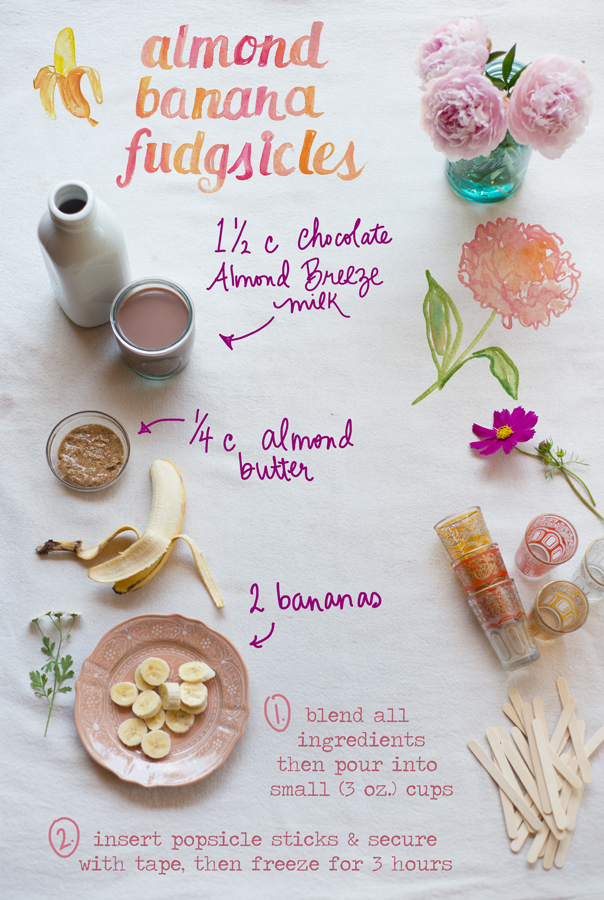 almond
banana
fudgsicles
1½ c chocolate
Almond Breeze
milk
¼ c almond
butter
2 bananas
1. blend all
ingredients
then pour into
small (3 oz.) cups
2. insert popsicle sticks & secure
with tape, then freeze for 3 hours